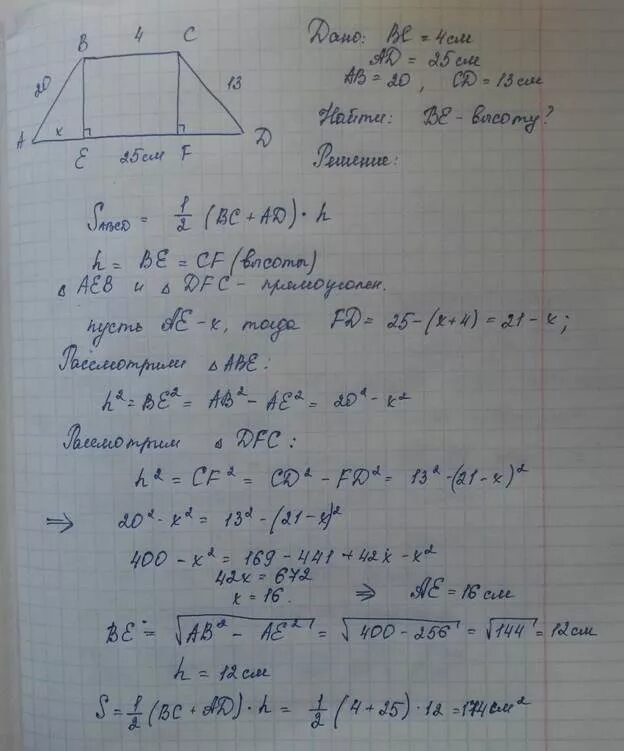 B 4 C
20 13
A x E 25см F D
Дано: BC = 4см
AD = 25см
AB = 20, CD = 13см
Найти: BE - высоту?
Решение:
S_ABCD = 1/2 (BC + AD) · h
h = BE = CF (высоты)
△ AEB и △ DFC - прямоуголен.
пусть AE - x, тогда FD = 25 - (x+4) = 21 - x;
Рассмотрим △ ABE:
h² = BE² = AB² - AE² = 20² - x²
Рассмотрим △ DFC:
h² = CF² = CD² - FD² = 13² - (21 - x)²
⇒ 20² - x² = 13² - (21 - x)²
400 - x² = 169 - 441 + 42x - x²
42x = 672
x = 16. ⇒ AE = 16 см
BE = √AB² - AE² = √400 - 256 = √144 = 12см
h = 12см
S = 1/2 (BC + AD) · h = 1/2 (4 + 25) · 12 = 174 см²